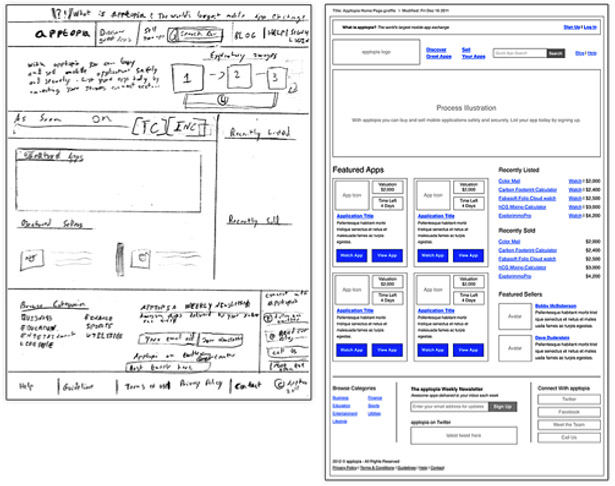 What is apptopia? The world's largest mobile app exchange
apptopia
Discover great apps
Sell your apps
Search Bar
BLOG | HELP | SIGNUP LOGIN
With apptopia you can buy
and sell mobile applications safely
and securely. List your app today by
Explanatory Images
1
2
3
4
As Seen On
[TC] [INC]
Recently Listed
Featured Apps
Recently Sold
Featured Sellers
Browse Categories
BUSINESS
FINANCE
EDUCATION
SPORTS
ENTERTAINMENT
UTILITIES
LIFESTYLE
APPTOPIA WEEKLY NEWSLETTER
Connect with apptopia
Call us
Help | Guidelines | Terms of Use | Privacy Policy | Contact
Title: Apptopia Home Page.graffle | Modified: Fri Dec 16 2011
What is apptopia? The world's largest mobile app exchange
Sign Up | Log In
apptopia logo
Discover
Great Apps
Sell
Your Apps
Search
Blog | Help
Process Illustration
With apptopia you can buy and sell mobile applications safely and securely. List your app today by signing up.
Featured Apps
App Icon
Valuation
$2,000
Time Left
4 Days
Application Title
Pellentesque habitant morbi
tristique senectus et netus et
malesuada fames ac turpis
egestas.
Watch App
View App
App Icon
Valuation
$2,000
Time Left
4 Days
Application Title
Pellentesque habitant morbi
tristique senectus et netus et
malesuada fames ac turpis
egestas.
Watch App
View App
App Icon
Valuation
$2,000
Time Left
4 Days
Application Title
Pellentesque habitant morbi
tristique senectus et netus et
malesuada fames ac turpis
egestas.
Watch App
View App
App Icon
Valuation
$2,000
Time Left
4 Days
Application Title
Pellentesque habitant morbi
tristique senectus et netus et
malesuada fames ac turpis
egestas.
Watch App
View App
Recently Listed
Color Mail Watch | $2,000
Carbon Footprint Calculator Watch | $2,400
Fabasoft Folio Cloud Watch | $2,500
hCG Mixing Calculator Watch | $3,000
ExplorimmoPro Watch | $4,200
Recently Sold
Color Mail $2,000
Carbon Footprint Calculator $2,400
Fabasoft Folio Cloud $2,500
hCG Mixing Calculator $3,000
ExplorimmoPro $4,200
Featured Sellers
Avatar
Bobby McRoberson
Pellentesque habitant morbi trist
ique senectus et netus et males
uada fames ac turpis egestas.
Avatar
Dave Duderstein
Pellentesque habitant morbi trist
ique senectus et netus et males
uada fames ac turpis egestas.
Browse Categories
Business
Finance
Education
Sports
Entertainment
Utilities
Lifestyle
The apptopia Weekly Newsletter
Awesome apps delivered to your inbox each week
Enter your email address for updates
Sign Up
apptopia on Twitter
latest tweet here
Connect With apptopia
Twitter
Facebook
Meet the Team
Call Us
2012 © apptopia - All Rights Reserved
Privacy Policy | Terms & Conditions | Guidelines | Help | Contact